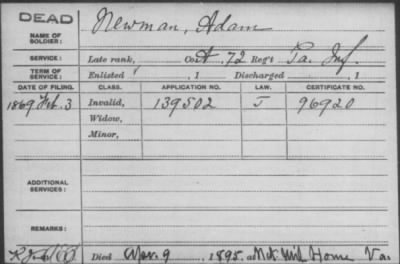 DEAD
NAME OF SOLDIER: Newman, Adam
SERVICE: Late rank, Co. A. 72 Reg't Pa. Inf.
TERM OF SERVICE: Enlisted , 1 Discharged , 1
DATE OF FILING. CLASS. APPLICATION NO. LAW. CERTIFICATE NO.
1869 Feb. 3 Invalid, 139502 96920
Widow,
Minor,
ADDITIONAL SERVICES:
REMARKS:
Died Nov. 9 1895. at Nat. Mil Home Va.